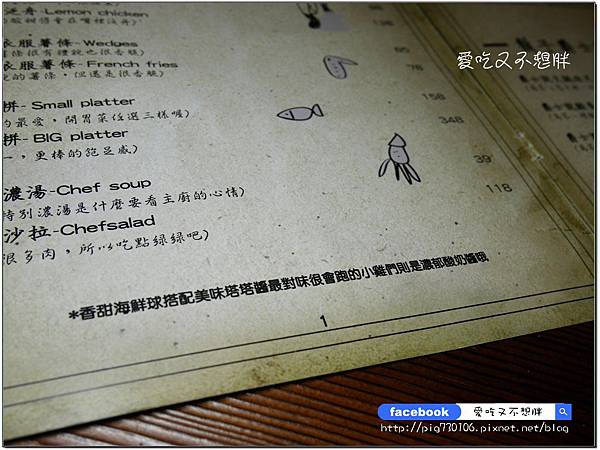 Lemon chicken
138
愛吃又不想胖
衣服薯條-Wedges
65
衣服薯條-French fries
的薯條，但還是很香脆)
78
拼- Small platter
的最愛，開胃菜任選三樣喔)
158
拼- BIG platter
一，更棒的飽足感)
348
濃湯-Chef soup
特別濃湯是什麼要看主廚的心情)
39
沙拉-Chefsalad
很多肉，所以吃點綠綠吧)
118
*香甜海鮮球搭配美味塔塔醬最對味很會跑的小雞們則是濃郁酸奶醬哦
1
facebook 愛吃又不想胖
http://pig730106.pixnet.net/blog